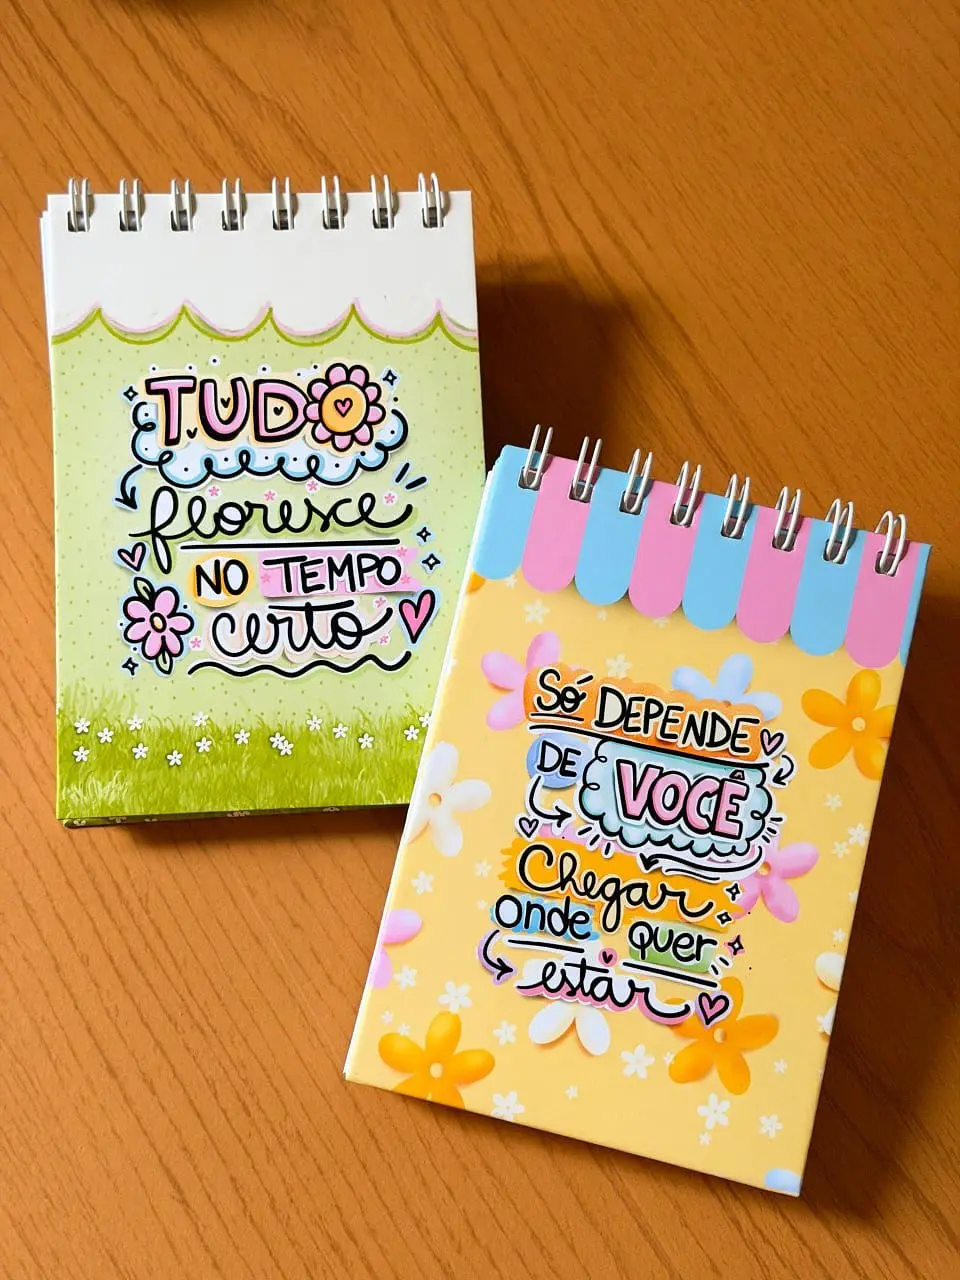 TUDO
floresce
NO TEMPO
certo
Só DEPENDE
DE VOCÊ
Chegar
onde quer
estar